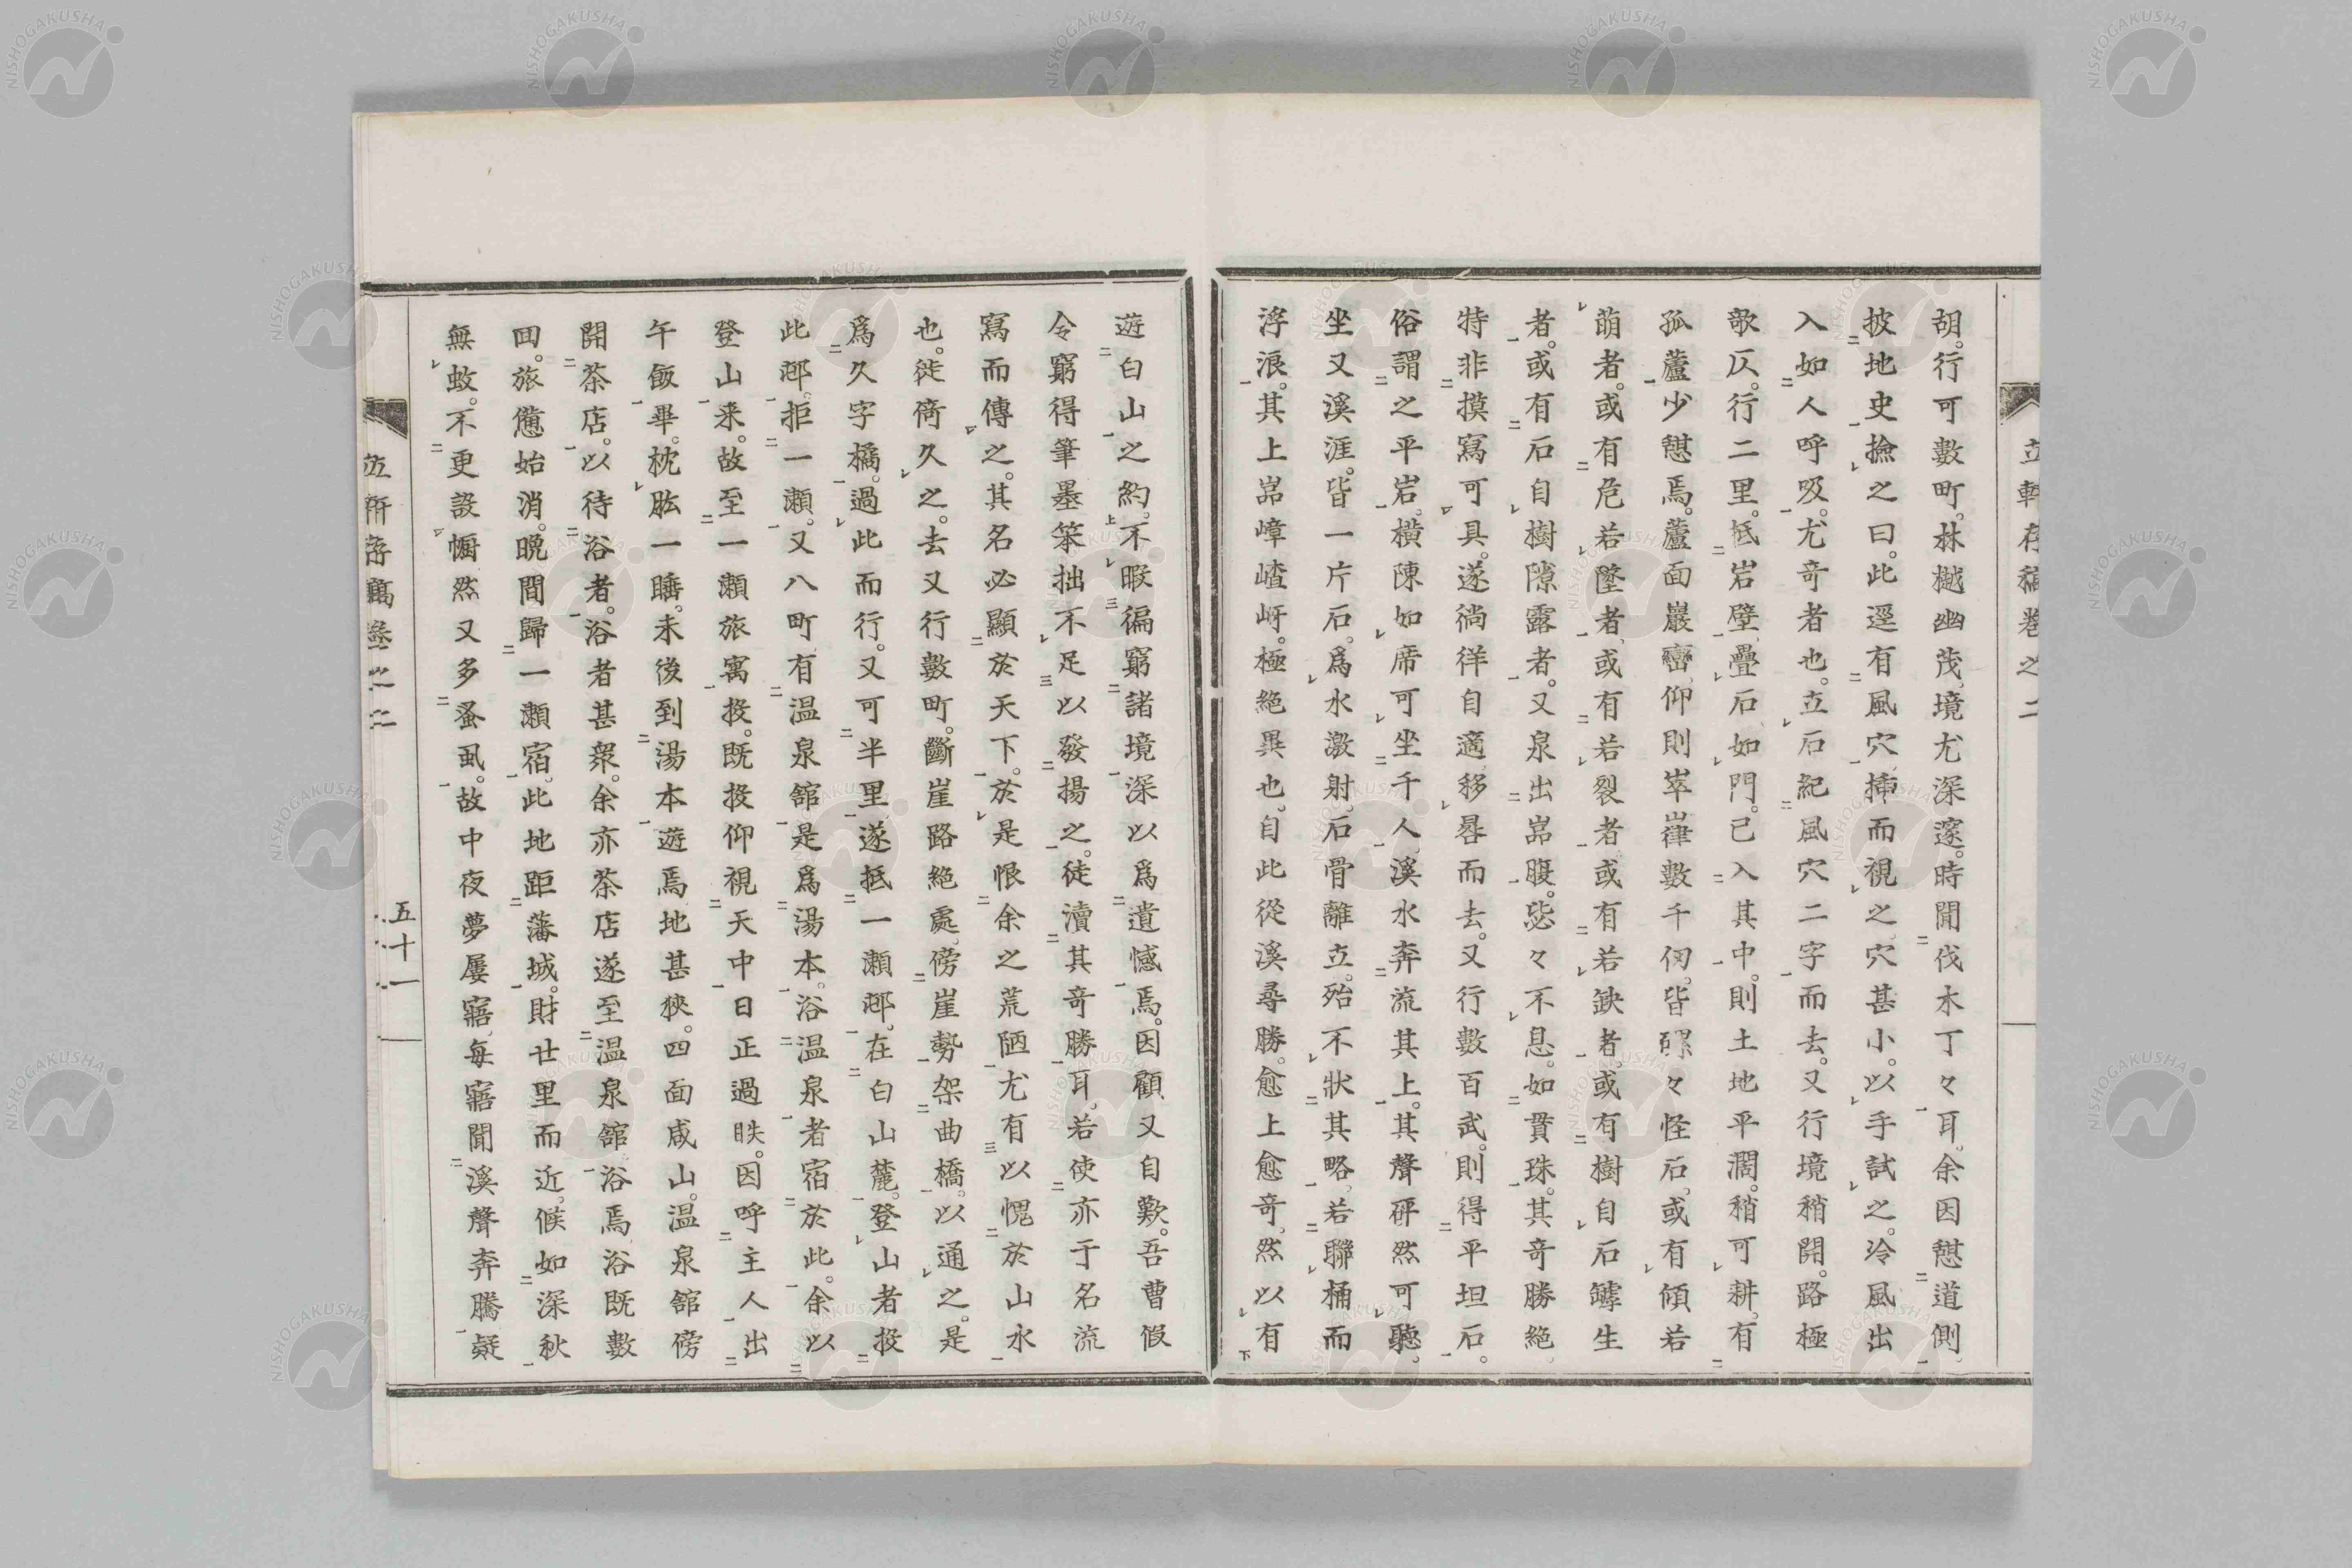 胡。行可數町。林樾幽茂、境尤深邃。時聞伐木丁々耳。余因憇道側、
披地史撿之曰。此逕有風穴、揷而視之、穴甚小。以手試之。冷風出
入如人呼吸。尤奇者也。立石紀風穴二字而去。又行境稍開。路極
欹仄。行二里。抵岩壁、疊石如門。已入其中。則土地平濶。稍可耕。有
孤蘆少憇焉。蘆面巖巒、仰則崒嵂數千仞。皆磥々怪石。或有傾若
萠者。或有危若墜者、或有若裂者、或有若缺者、或有樹自石罅生
者。或有石自樹隙露者。又泉出岊腹。毖々不息。如貫珠。其奇勝絶、
特非摸寫可具。遂徜徉自適、移晷而去。又行數百武。則得平坦石。
俗謂之平岩。橫陳如席、可坐千人、溪水奔流其上。其聲砰然可聽。
坐又溪涯。皆一片石。爲水激射、石骨離立。殆不狀其略、若聯桶而
浮浪。其上岊嶂嵖岈。極絶異也。自此從溪尋勝。愈上愈奇、然以有
遊白山之約。不暇徧窮諸境、深以爲遺憾焉。因顧又自歎。吾曹假
令窮得筆墨策拙不足以發揚之。徒瀆其奇勝耳。若使亦于名流
寫而傳之。其名必顯於天下。於是恨余之荒陋、尤有以愧於山水
也。徙倚久之。去又行數町。斷崖路絶處、傍崖勢架曲橋。以通之。是
爲久字橋。過此而行。又可半里、遂抵一瀬邨。在白山麓。登山者投
此邨。拒一瀬。又八町有温泉舘、是爲湯本。浴温泉者宿於此。余以
登山来。故至一瀬旅寓投。既投仰視天中日正過昳。因呼主人出
午飯畢。枕肱一睡。未後到湯本遊焉地甚狹。四面咸山。温泉舘傍
開茶店。以待浴者。浴者甚衆。余亦茶店遂至温泉舘浴焉浴既數
回。旅憊始消。晩間歸一瀬宿。此地距藩城。財廿里而近。候如深秋
無蚊。不更設幮然又多蚤虱。故中夜夢屢寤、毎寤聞溪聲奔騰疑
五十一